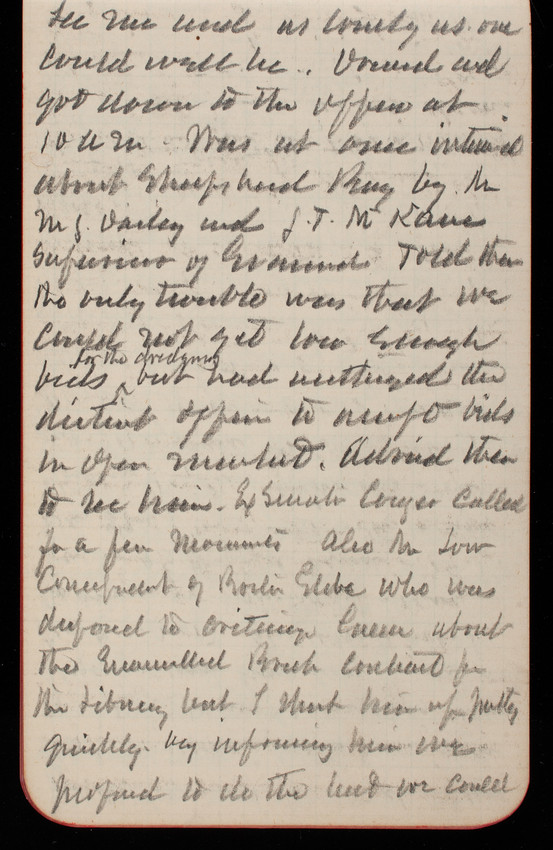 see me and as lovely as one
could well be. Dressed and
got down to the office at
10 a m. Was at once
about Sheepshead Bay by Mr
J. T. McKane
Supervisor of Gravesend. Told them
the only trouble was that we
could not get low enough
bids for the dredging but had the
district officer to accept bids
in open market. Advised them
to see him. Ex Senator Conger called
for a few moments Also Mr
of who was
disposed to criticize Green about
the Enamelled Brick Contract for
the Library but I shut him up pretty
quickly by informing him we
proposed to do the best we could